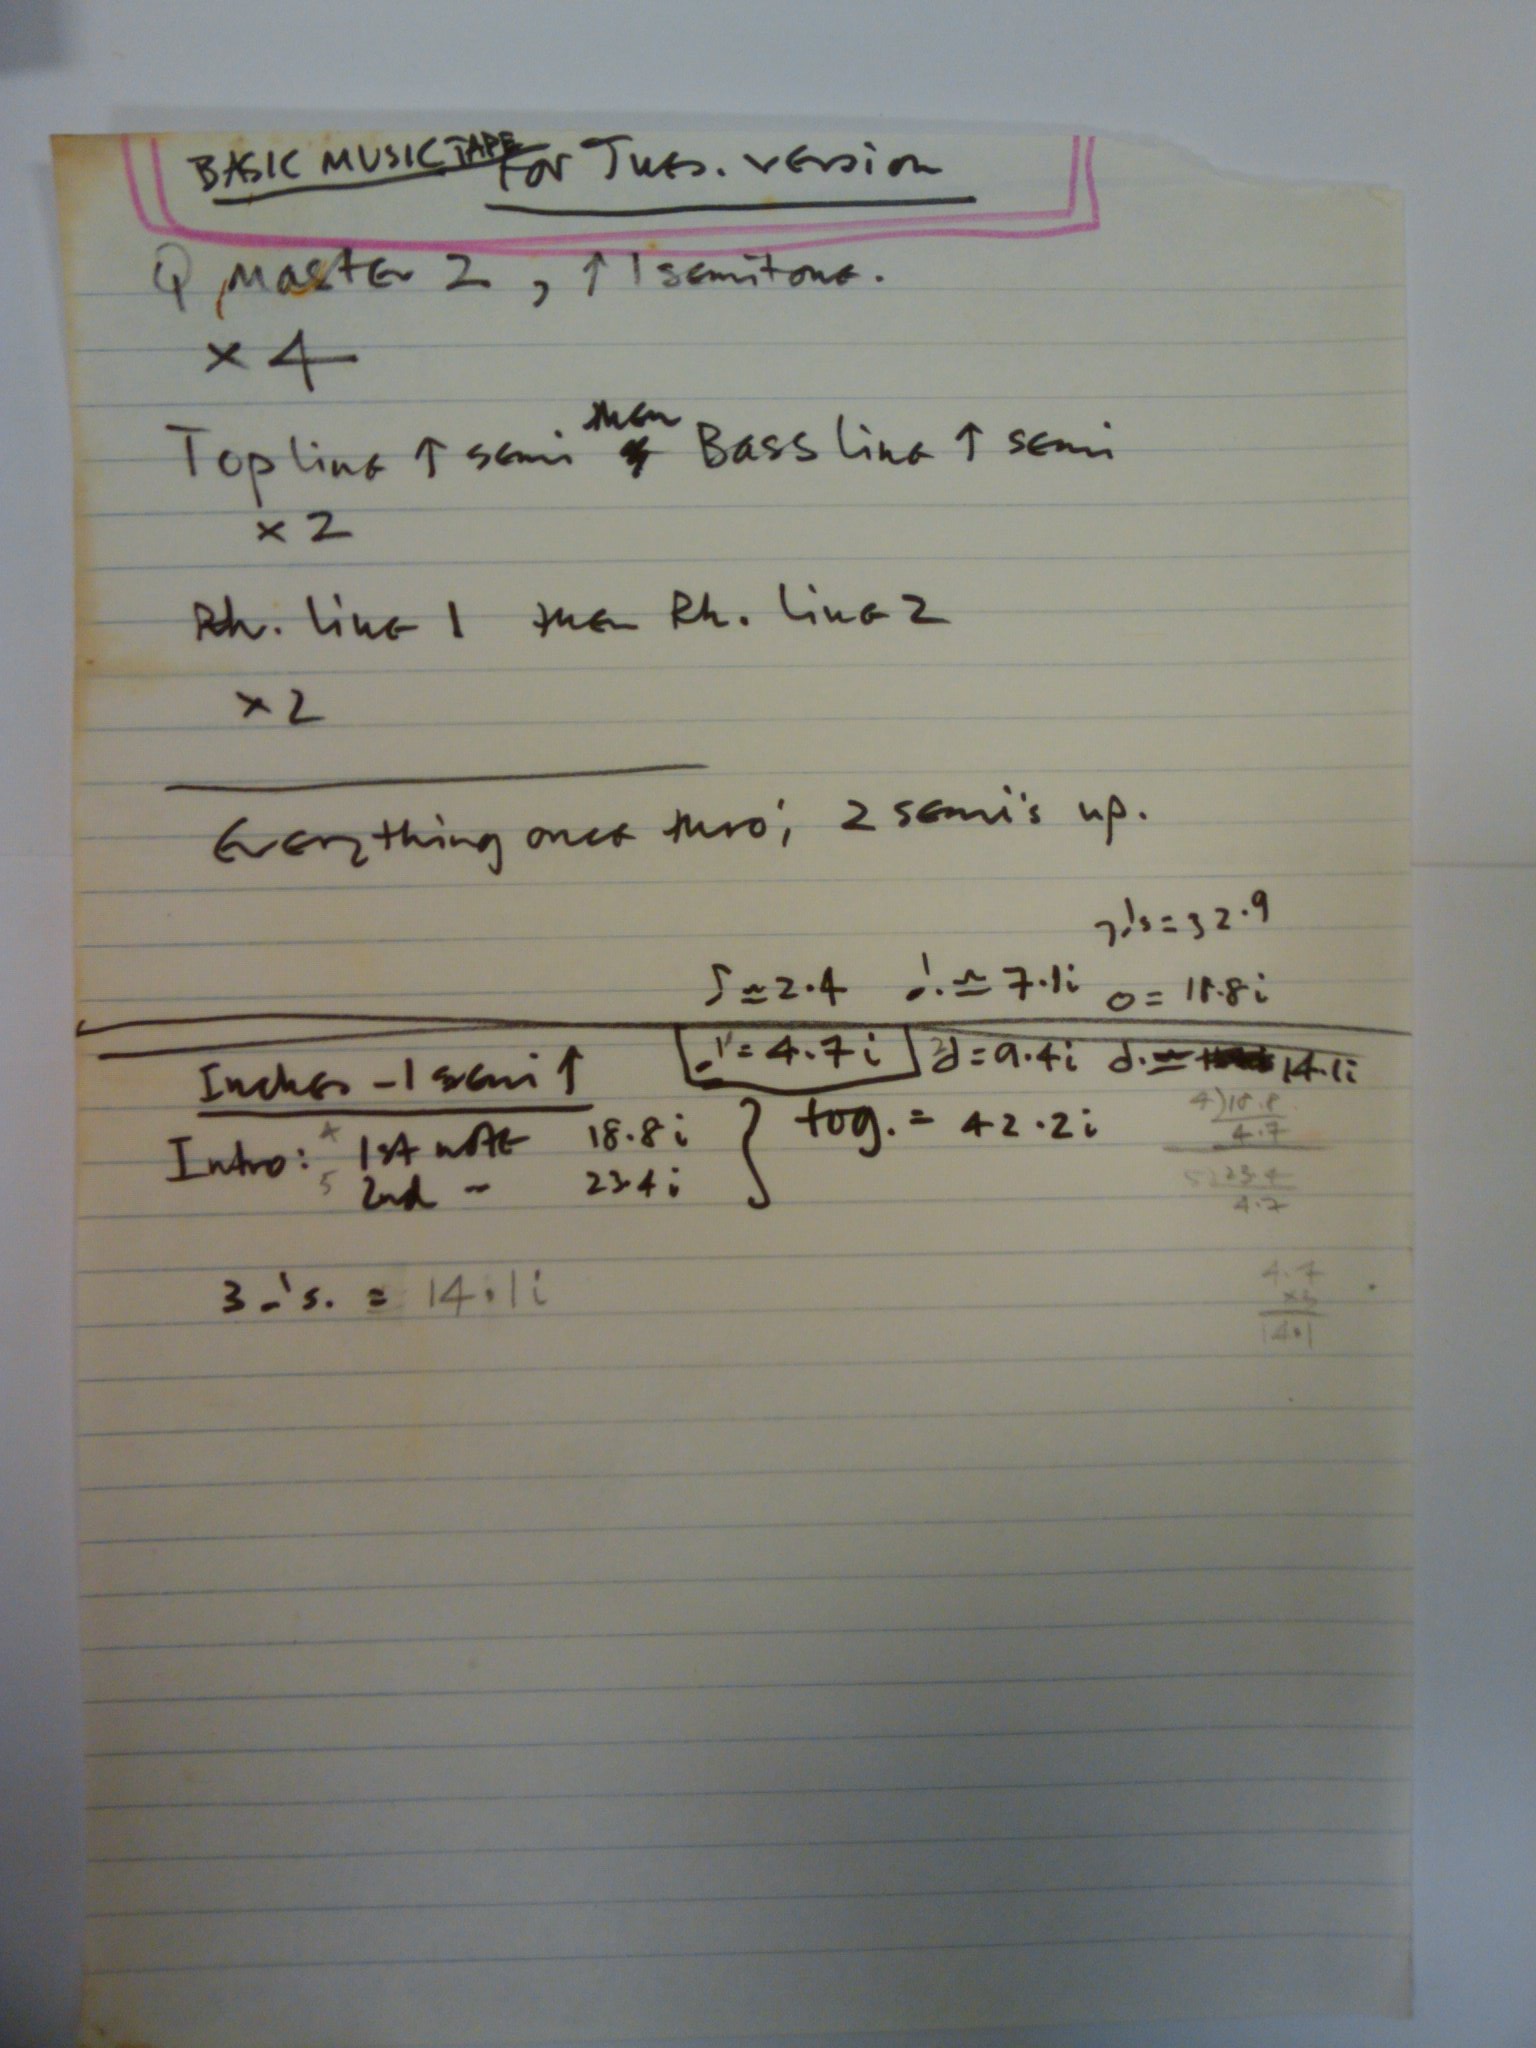 BASIC MUSIC TAPE For Tues. version
Q Master 2, ↑ 1 semitone.
x 4
Top line ↑ semi then Bass line ↑ semi
x 2
Rh. line 1 then Rh. line 2
x 2
Everything once thro', 2 semi's up.
7 ♩'s = 32.9
♪ ≃ 2.4 ♩. ≃ 7.1i o = 18.8i
♩ = 4.7i 𝅗𝅥 = 9.4i 𝅗𝅥. = 14.1i
Inches - 1 semi ↑
Intro: 4 1st note 18.8i } tog. = 42.2i
5 2nd " 23.4i
4)18.8
4.7
5)23.4
4.7
3 ♩'s. = 14.1i
4.7
x3
14.1